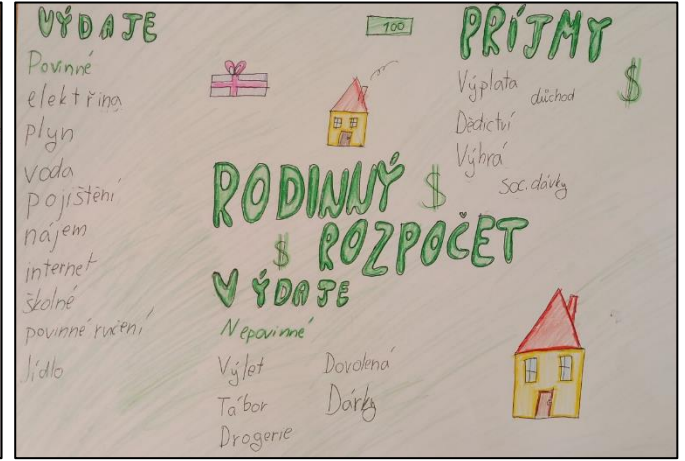 VÝDAJE
Povinné
elektřina
plyn
voda
pojištění
nájem
internet
školné
povinné ručení
Jídlo
100
PŘÍJMY
$
Výplata
důchod
Dědictví
Výhra
soc. dávky
RODINNÝ $
$ ROZPOČET
VÝDAJE
Nepovinné
Výlet Dovolená
Tábor Dárky
Drogerie